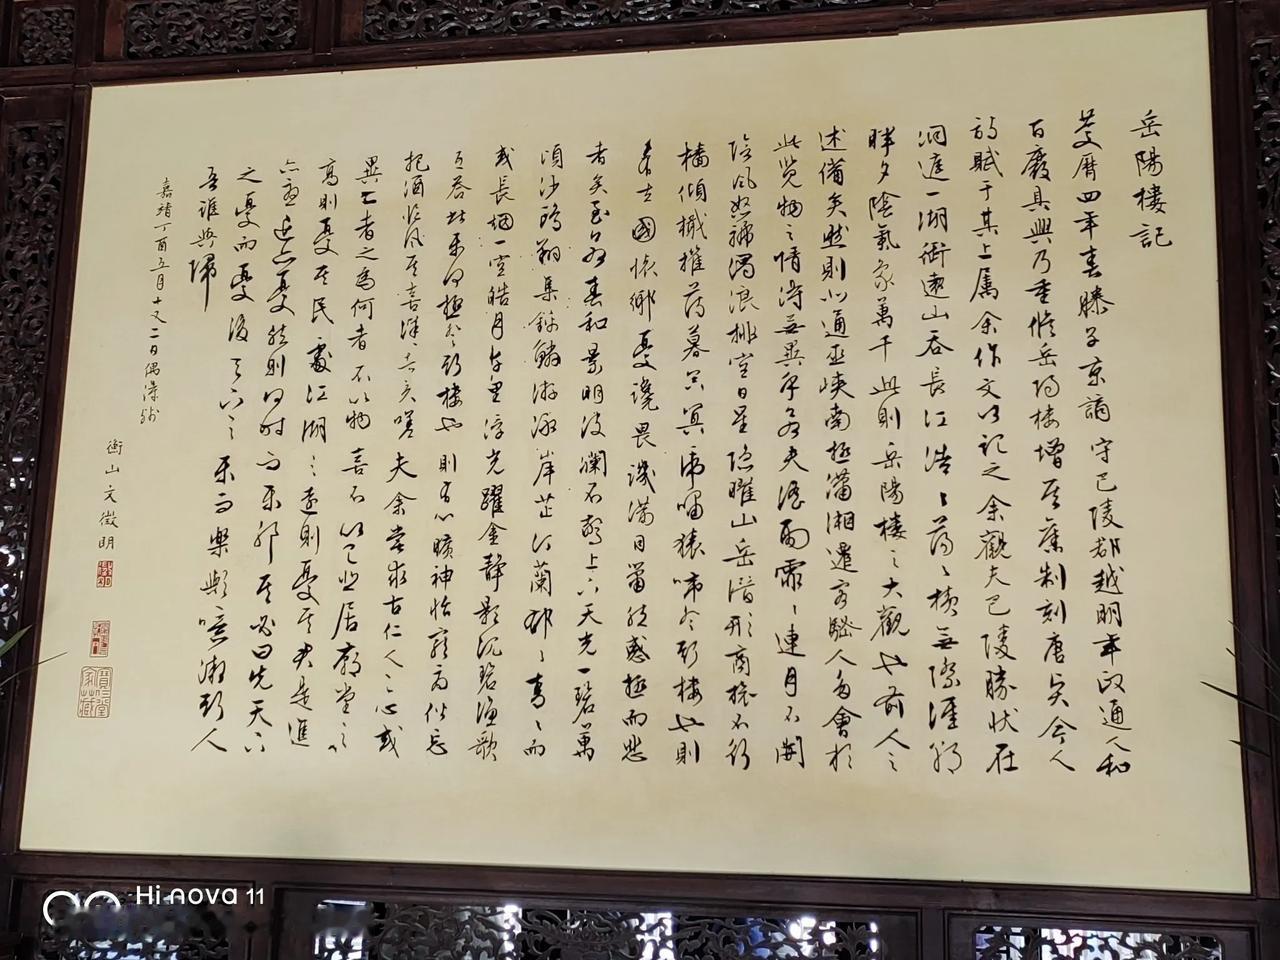 岳陽樓記
慶曆四年春滕子京謫守巴陵郡越明年政通人和
百廢具興乃重脩岳陽樓增其舊制刻唐賢今人
詩賦于其上属余作文以記之余觀夫巴陵勝状在
洞庭一湖銜遠山吞長江浩〻蕩〻横無際涯朝
暉夕陰氣象萬千此則岳陽樓之大觀也前人之
述備矣然則北通巫峽南極瀟湘遷客騷人多會於
此覽物之情得無異乎若夫淫雨霏〻連月不開
陰風怒號濁浪排空日星隐曜山岳潛形商旅不行
檣傾檝摧薄暮冥冥虎嘯猿啼登斯樓也則
有去國懷鄉憂讒畏譏滿目蕭然感極而悲
者矣至若春和景明波瀾不驚上下天光一碧萬
頃沙鷗翔集錦鱗游泳岸芷汀蘭郁〻青〻而
或長烟一空皓月千里浮光躍金静影沉璧漁歌
互答此樂何極登斯樓也則有心曠神怡寵辱偕忘
把酒臨風其喜洋〻者矣嗟夫余嘗求古仁人之心或
異二者之為何者不以物喜不以己悲居廟堂之
高則憂其民處江湖之遠則憂其君是進
亦憂退亦憂然則何時而樂耶其必曰先天下
之憂而憂後天下之樂而樂歟噫微斯人
吾誰與歸
嘉靖丁酉五月十又二日偶
衡山文徵明
Hi nova 11